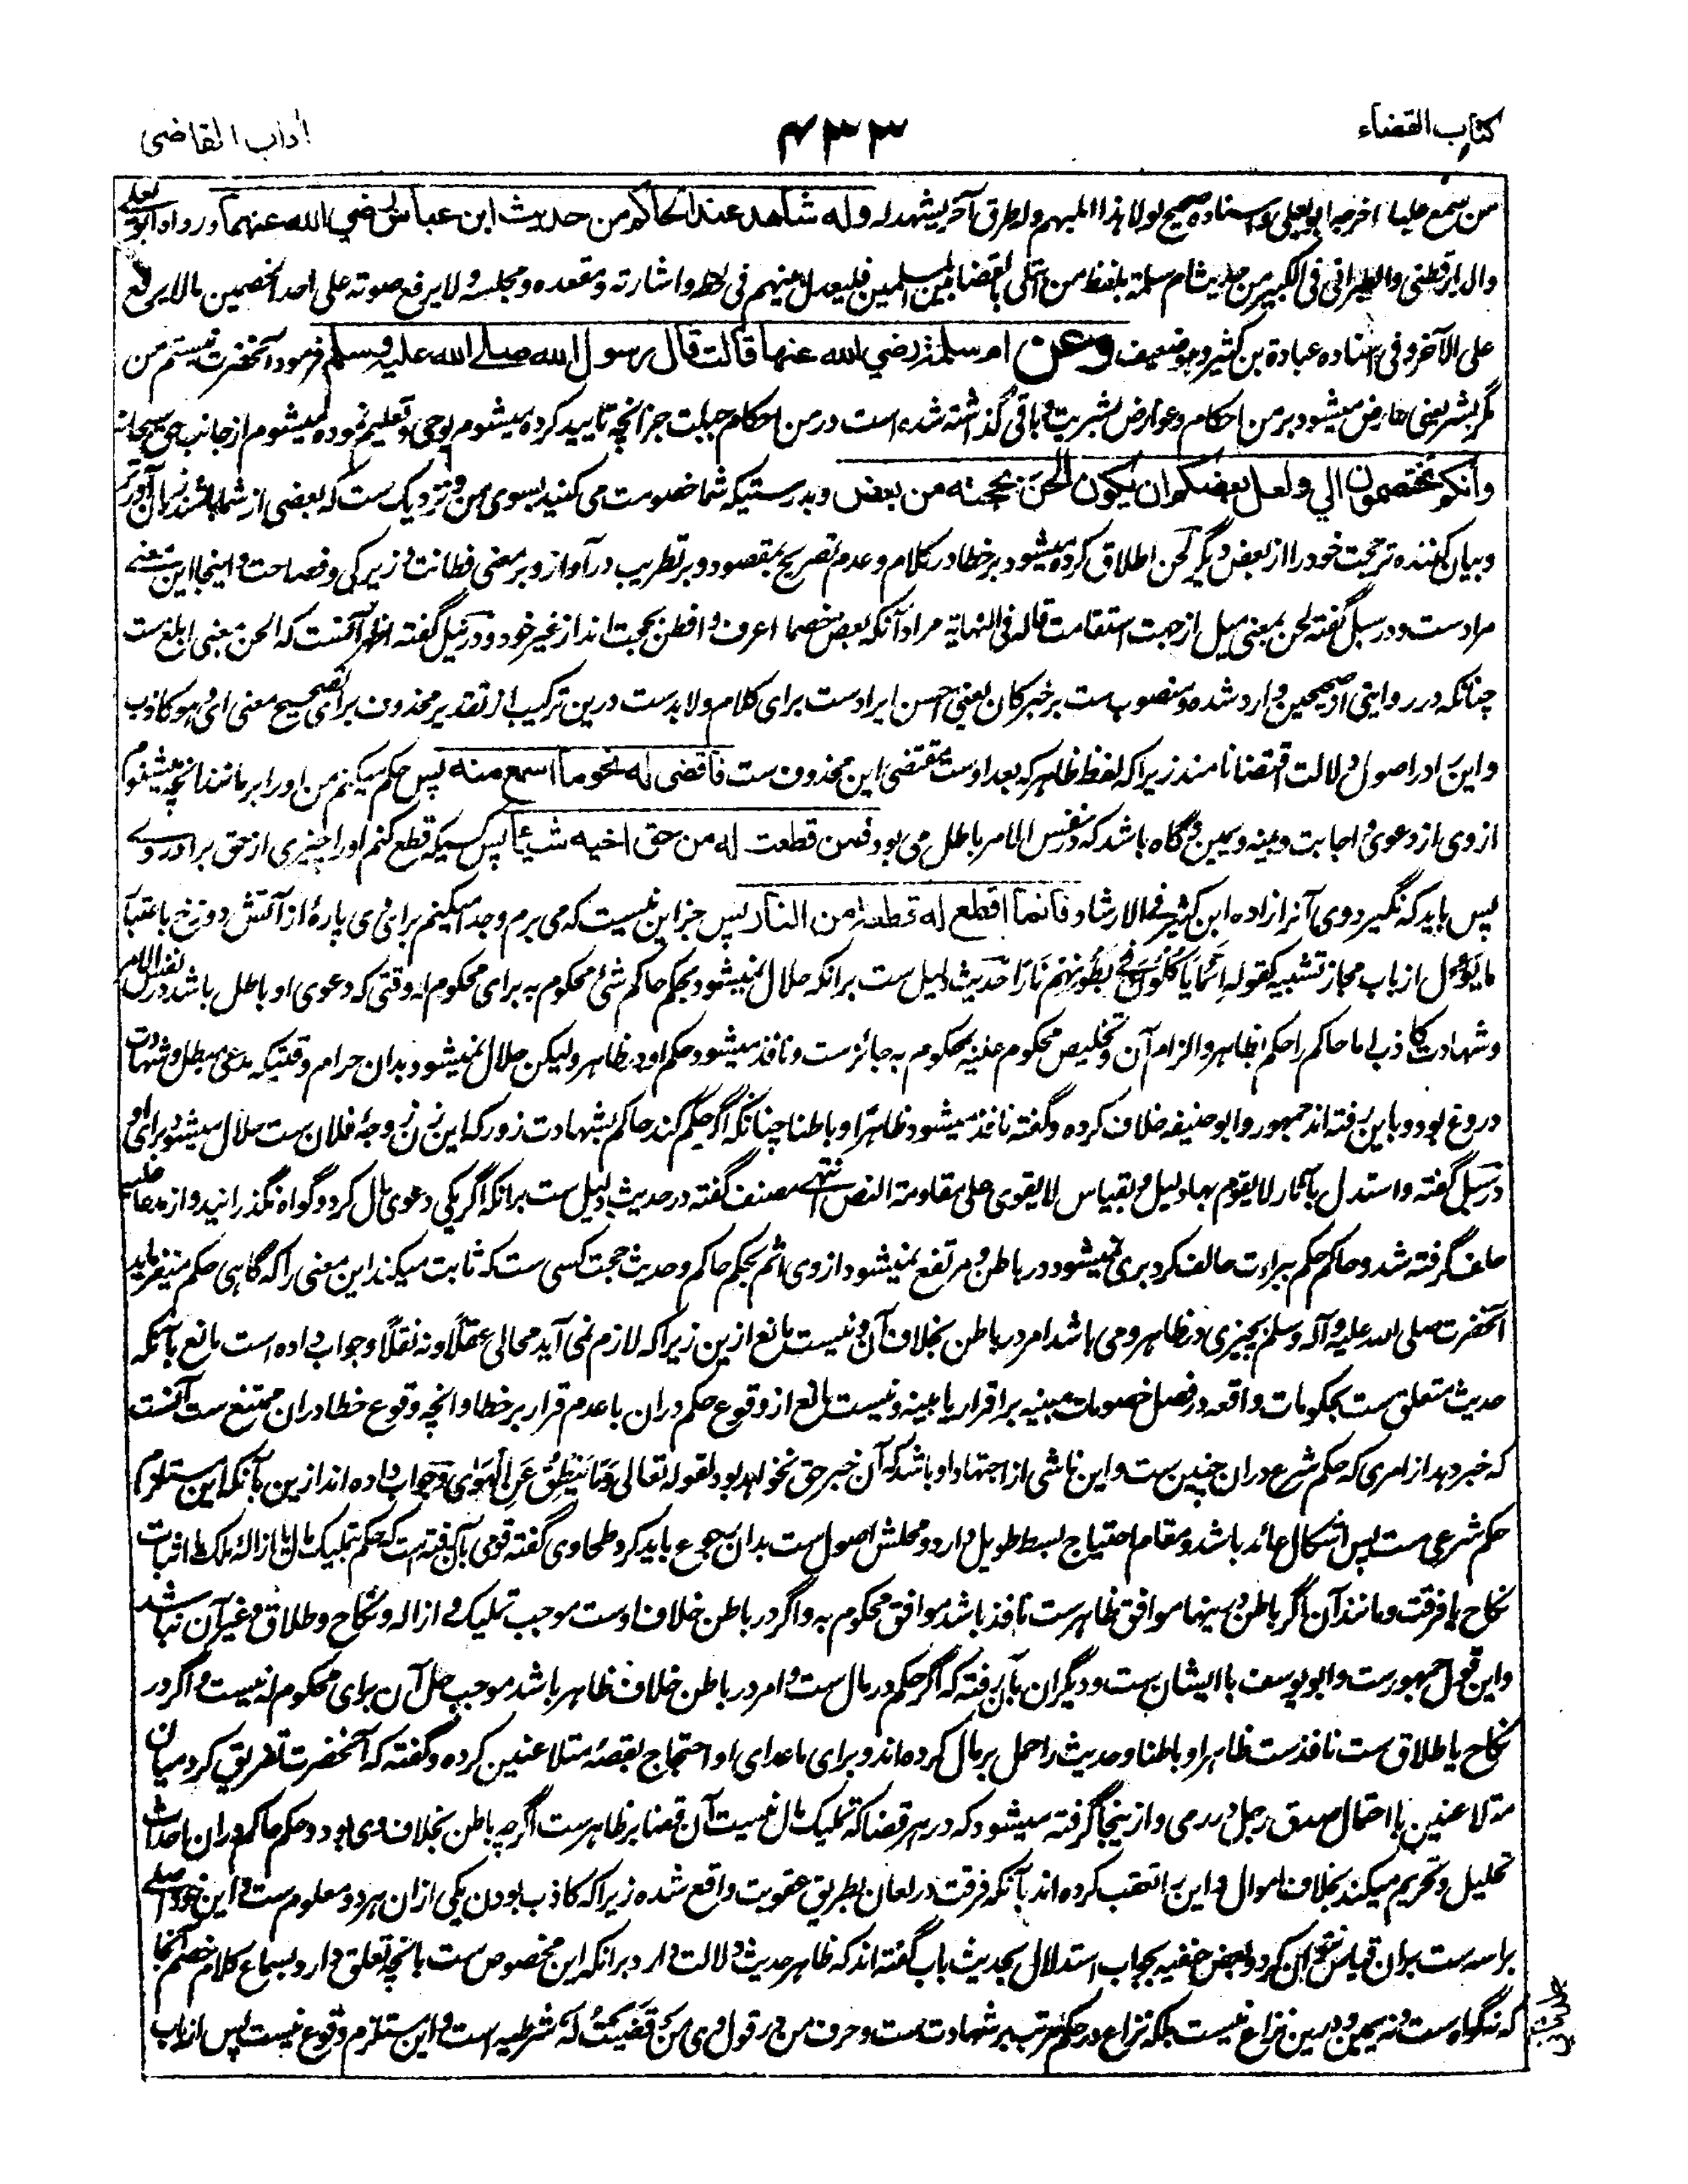 کتاب القضاء
۴۳۳
آداب القاضی
من سمع علیا اخرجه ابو یعلی و اسناده صحیح لولا هذا المبهم وله طرق آخر یشهد له وله شاهد عند الحاکم من حدیث ابن عباس رضی الله عنهما ورواه ابو یعلے
والدارقطنی والطبرانی فی الکبیر من حدیث ام سلمة بلفظ من ابتلی بالقضا بین المسلمین فلیعدل بینهم فی لحظه واشارته ومقعده ومجلسه ولا یرفع صوته علی احد الخصمین مالا یرفع
علی الآخر وفی اسناده عبادة بن کثیر وهو ضعیف وعن ام سلمة رضی الله عنها قالت قال رسول الله صلے الله علیه وسلم فرمود آنحضرت نیستم من
مگر بشر یعنی عارض میشود بر من احکام وعوارض بشریت و باقی گذاشته شده است در من احکام جبلت جز آنچه تایید کرده میشوم بوحی وتعلیم نموده میشوم از جانب حق سبحانه
وانکم تختصمون الی ولعل بعضکم ان یکون الحن بحجته من بعض وبدرستیکه شما خصومت می کنید بسوی من و نزدیک ست که بعضی از شما باشند زبان آورتر
وبیان کننده تر حجت خود را از بعض دیگر لحن اطلاق کرده میشود بر خطا در کلام وعدم تصریح بمقصود وبر تطریب در آواز وبر معنی فطانت و زیرکی وفصاحت و اینجا این معنے
مرادست ودر سبل گفته لحن بمعنی میل از جهت استقامت قاله فی النهایة مراد آنکه بعض خصما اعرف وافطن بحجت اند از غیر خود ودر نیل گفته اظهر آنست که الحن بمعنی ابلغ ست
چنانکه در روایتی از صحیحین وارد شده ومنصوب ست بر خبر کان یعنی احسن ایرادست برای کلام ولابدست درین ترکیب از تقدیر محذوف برای تصحیح معنی ای وهو کاذب
واین را در اصول دلالت اقتضا نامند زیراکه لفظ ظاهر که بعد اوست مقتضی این محذوف ست فاقضی له نحو ما اسمع منه پس حکم میکنم من او را بر مانند آنچه میشنوم
از وی از دعوی و اجابت وبینه ویمین و گاه باشد که در نفس الامر باطل می بود فمن قطعت له من حق اخیه شیئا پس کسیکه قطع کنم او را چیزی از حق برادر وے
پس باید که نگیرد وی آنرا زاده ابن کثیر فی الارشاد فانما اقطع له قطعة من النار پس جز این نیست که می برم وجدا میکنم برای وی پارهٔ از آتش دوزخ باعتبار
ما یؤول از باب مجاز تشبیه کقوله اِنَّمَا یَاْکُلُوْنَ فِیْ بُطُوْنِهِمْ نَارًا حدیث دلیل ست برانکه حلال نمیشود بحکم حاکم شئ محکوم به برای محکوم له وقتی که دعوی او باطل باشد در نفس الامر
وشهادت کاذب اما حاکم را حکم بظاهر والزام آن وتخلیص محکوم علیه بمحکوم به جائزست ونافذ میشود حکم او در ظاهر ولیکن حلال نمیشود بدان حرام وقتیکه مدعی مبطل وشهادت
دروغ بود وباین رفته اند جمهور وابو حنیفه خلاف کرده وگفته نافذ میشود ظاهرا وباطنا چنانکه اگر حکم کند حاکم بشهادت زور که این زن زوجهٔ فلان ست حلال میشود برای او
در سبل گفته واستدل بآثار لا یقوم بها دلیل و بقیاس لا یقوی علی مقاومة النص انتهے مصنف گفته در حدیث دلیل ست برانکه اگر یکی دعوی مال کرد وگواه نگذرانید واز مدعا علیه
حلف گرفته شد وحاکم حکم ببراءت حالف کرد بری نمیشود در باطن و مرتفع نمیشود از وی اثم بحکم حاکم وحدیث حجت کسی ست که ثابت میکند این معنی را که گاهی حکم میفرماید
آنحضرت صلی الله علیه وآله وسلم بچیزی در ظاهر ومی باشد امر در باطن بخلاف آن و نیست مانع ازین زیراکه لازم نمی آید محالی عقلًا ونه نقلًا وجواب داده است مانع بآنکه
حدیث متعلق ست بحکومات واقعه در فصل خصومات مبینه بر اقرار یا بینه ونیست مانع از وقوع حکم دران با عدم قرار بر خطا وانچه وقوع خطا دران ممتنع ست آنست
که خبر دهد از امری که حکم شرع دران چنین ست واین ناشی از اجتهاد او باشد که آن خبر حق نخواهد بود لقوله تعالی وَمَا یَنْطِقُ عَنِ الْهَوٰی وجواب داده اند ازین بآنکه این مستلزم
حکم شرعی ست پس اشکال عائد باشد ومقام احتیاج بسط طویل دارد ومحلش اصول ست بدان رجوع باید کرد طحاوی گفته قومی بآن رفته است که حکم بتملیک مال یا ازالهٔ ملک یا اثبات
نکاح یا فرقت ومانند آن اگر باطن و بینها موافق ظاهرست نافذ باشد موافق محکوم به واگر در باطن خلاف اوست موجب تملیک و ازاله ونکاح وطلاق وغیر آن نباشد
واین قول جمهورست وابو یوسف با ایشان ست ودیگران بآن رفته که اگر حکم در مال ست و امر در باطن خلاف ظاهر باشد موجب حل آن برای محکوم له نیست و اگر در
نکاح یا طلاق ست نافذست ظاهرا وباطنا وحدیث را حمل بر مال کرده اند وبرای ماعدای او احتجاج بقصهٔ متلاعنین کرده وگفته که آنحضرت تفریق کرد میان
متلاعنین با احتمال صدق رجل در رمی وازینجا گرفته میشود که در هر قضا که تملیک مال نیست آن قضا بر ظاهرست اگرچه باطن بخلاف وی بود وحکم حاکم دران احداث
تحلیل وتحریم میکند بخلاف اموال و این را تعقب کرده اند بآنکه فرقت در لعان بطریق عقوبت واقع شده زیراکه کاذب بودن یکی ازان هر دو معلوم ست و این خود اصلے
براسه ست بران قیاس نتوان کرد وبعض حنفیه بجواب استدلال بحدیث باب گفته اند که ظاهر حدیث دلالت دارد برانکه این مخصوص ست بانچه تعلق دارد بسماع کلام خصم آنجا
که نه گواه ست ونه یمین و درین نزاع نیست بلکه نزاع در حکم مرتب بر شهادت ست وحرف من در قول وی مَنْ قَضَیْتُ لَهٗ شرطیه است و این مستلزم وقوع نیست پس از باب